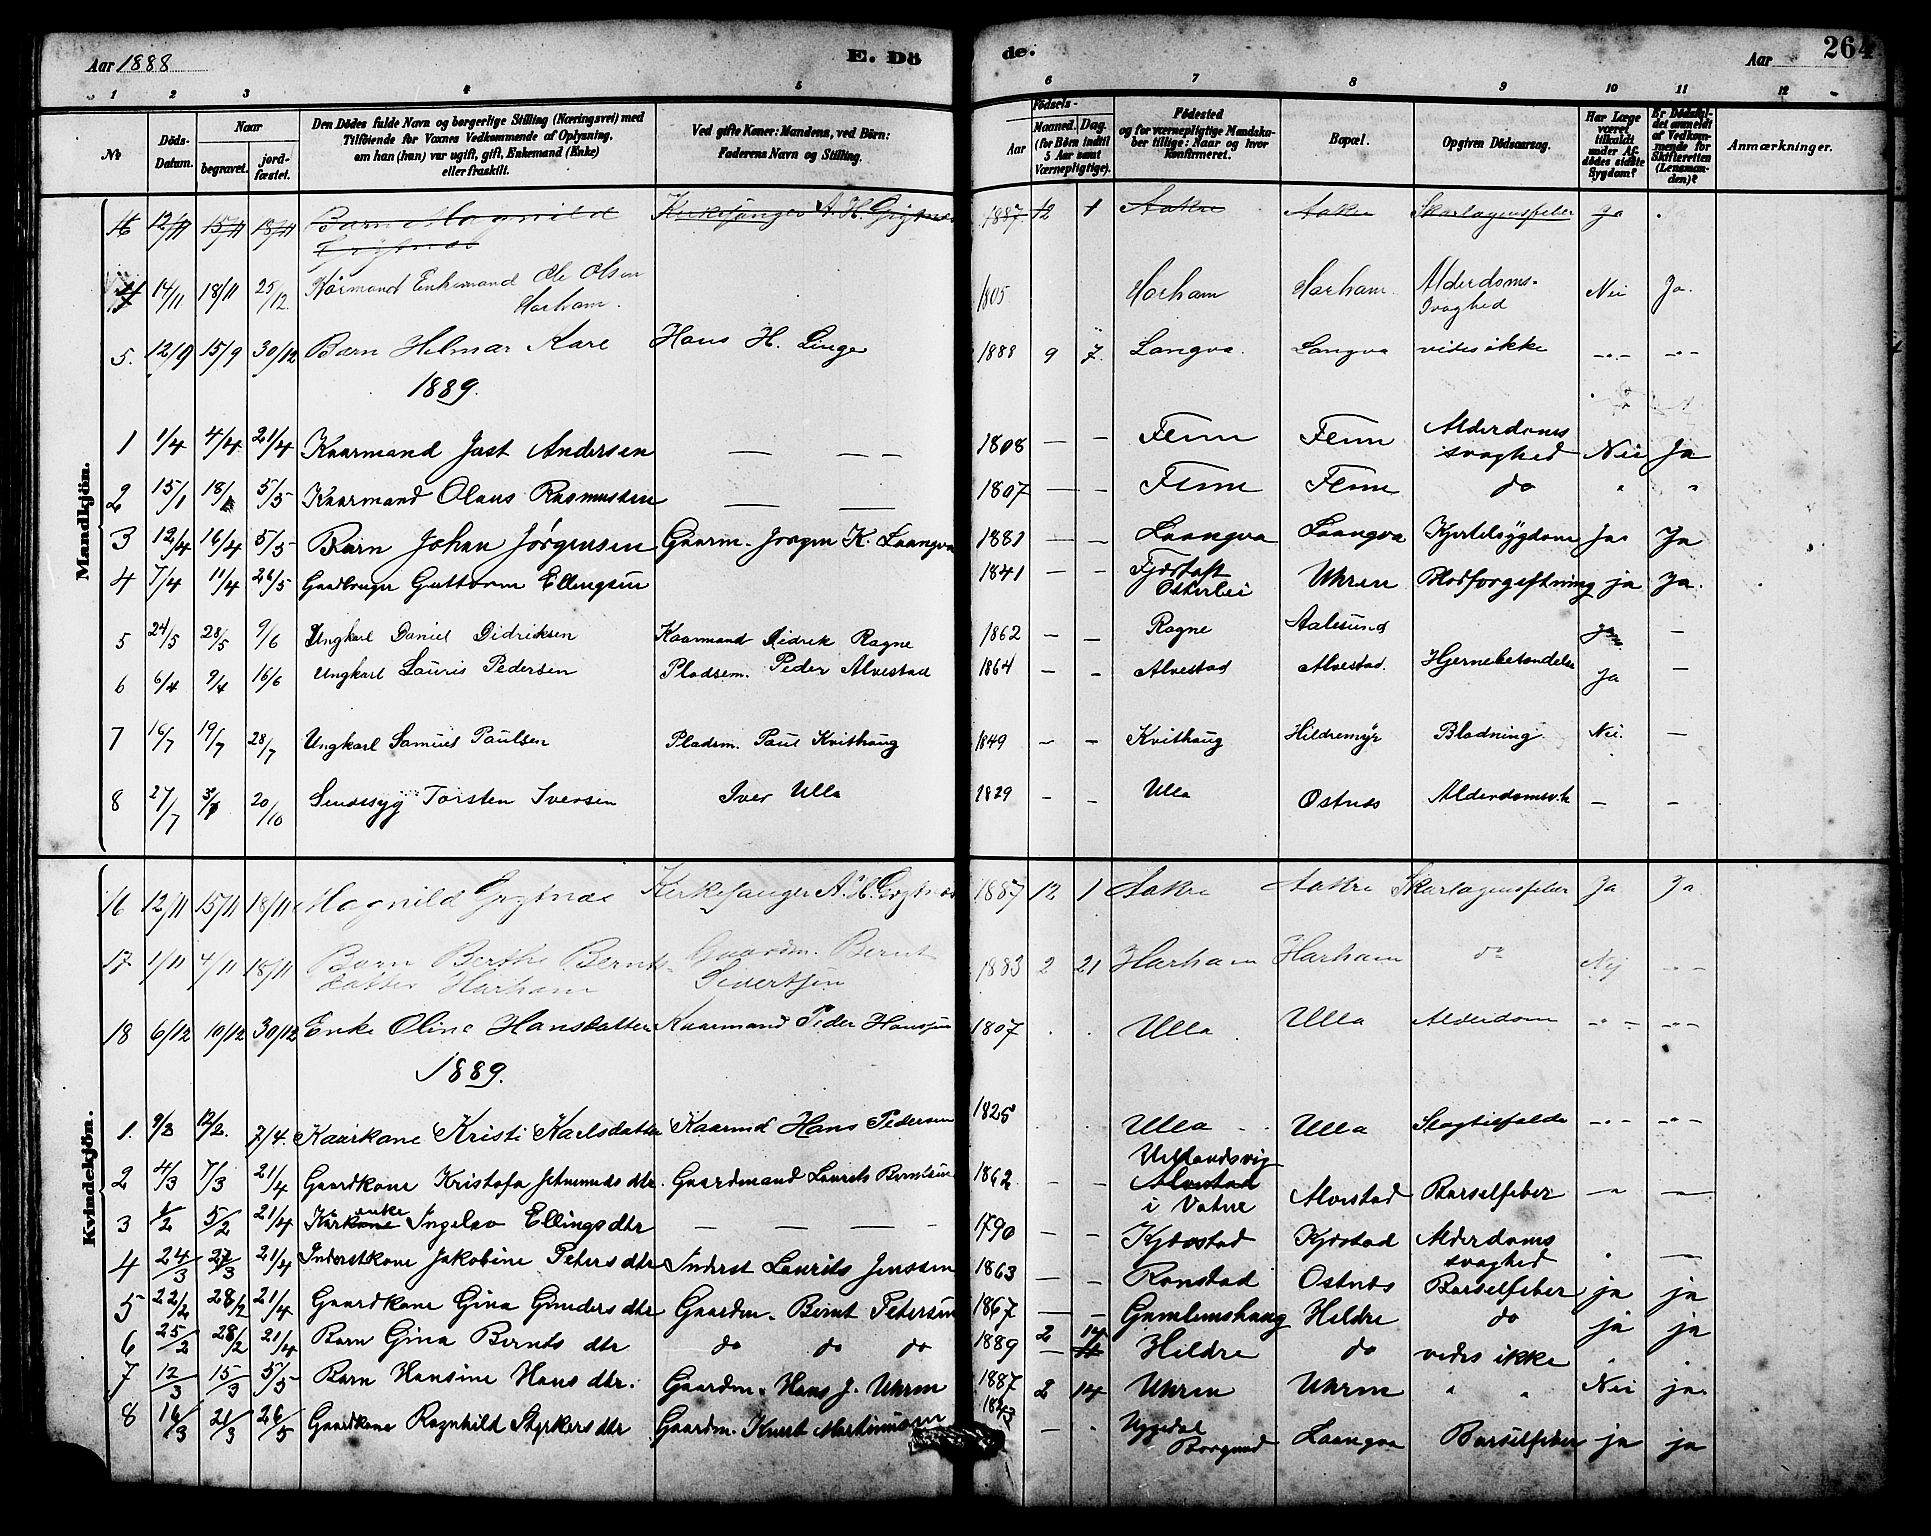 Aar 1888 E. Dö de. Aar 264
1 2 3 4 5 6 7 8 9 10 11 12
No
Döds-Datum.
Naar
begravet.
jord-fæstet.
Den Dödes fulde Navn og borgerlige Stilling (Næringsvei) med
Tilföiende for Voxnes Vedkommende af Oplysning,
om han (hun) var ugift, gift, Enkemand (Enke)
eller fraskilt.
Ved gifte Koner: Mandens, ved Börn:
Faderens Navn og Stilling.
Födsels-
Aar
Maaned. Dag.
(for Börn indtil
5 Aar samt
Værnepligtige).
Födested
og for værnepligtige Mandska-
ber tillige: Naar og hvor
konfirmeret.
Bopæl.
Opgiven Dödsaarsag.
Har Læge
været
tilkaldt
under Af-
dödes sidste
Sygdom?
Er Dödsfal-
det anmeldt
af Vedkom-
mende for
Skifteretten
(Lensman-
den)?
Anmærkninger.
Mandkjön.
16 12/11 15/11 18/11 Barn Magnild Kirkesanger A. H. Grytnæs 1887 12 1 Aakre Aakre Skarlagensfeber Ja
Grytnæs
14/11 18/11 25/12 Kårmand Enkemand Ole Olsen 1805 Harham Harham Alderdoms- Nei Ja.
Harham. svaghed
5. 12/9 15/9 30/12 Barn Hilmar Kare Hans H. Linge 1888 9 7. Langva. Langva vides ikke -"- -"-
1889.
1 1/4 4/4 21/4 Kaarmand Jost Andersen — — — 1808 — — Femn Femn Alderdoms svaghed Nei Ja
2 15/1 18/1 5/5 Kaarmand Olaus Rasmussen — — 1807 — — Femn Femn do " "
3 12/4 16/4 5/5 Barn Johan Jørgensen Gaarm. Jørgen K. Laangva 1881 — — Laangva Laangva Kjertelsygdom Ja Ja
4 7/4 11/4 26/5 Gaardbruger Guttorm Ellingsen 1841 — — Fjørtoft Osterlei Uhren Blodforgiftning ja Ja.
5 24/5 28/5 9/6 Ungkarl Daniel Didriksen Kaarmand Didrek Rogne 1862 — — Rogne Aalesund —
6 6/4 9/4 16/6 Ungkarl Lauris Pedersen Pladsem. Peder Alvestad 1864 — — Alvestad Alvestad. Hjernebetændelse Ja —
7 16/7 19/7 28/7 Ungkarl Samuel Paulsen Pladsm. Paul Kvithaug 1849 — — Kvithaug Hildremyr Blødning Nei. —
8 27/7 20/10 Sindssyg Torsten Iversen Iver Ulla 1829 — — Ulla Ostnæs Alderdomsv.h — —
Kvindekjön.
16 12/11 15/11 18/11 Magnild Grytnæs Kirkesanger A. H. Grytnæs 1887 12 1 Aakre Aakre Skarlagensfeber Ja Ja
17 1/11 4/11 18/11 Barn Berthe Bernts- Gaardm. Bernt 1883 2 21 Harham Harham do Nej -"-
datter Harham Sivertsen
18 6/12 10/12 30/12 Enke Oline Hansdatter Kaarmand Peder Hanssen 1807 Ulla Ulla Alderdom -"- -"-
1889.
1. 9/2 12/2. 7/4. Kaarkone Kristi Karlsdatter Kaarmd Hans Pedersen 1825 Ulla Ulla Slagtilfælde -"- -"-
2 4/3 7/3 21/4 Gaardkone Kristofa dtr. Gaardmand Laurits Berntsen 1862 — — Alvestad i Vatne Alvestad Barselfeber — —
3 1/2 5/2 21/4 Kårkone enke Ingeleo Ellings dtr — — — — 1790 — — Kjøvstad Kjøvstad Alderdoms svaghed —
4 24/3 27/3 21/4 Inderstkone Jakobine Peters dtr Inderst Laurits Jenssen 1863 — — Ronstad Ostnæs Barselfeber ja ja
5 22/2 28/2 21/4 Gaardkone Gina Gunders dtr Gaardm. Bernt Petersen 1867 — — Gamlemshaug Hildre do ja ja
6 25/2 28/2 21/4 Barn Gina Bernts dtr do do do 1889 2 14 Hildre do vides ikke " "
7 12/3 15/3 5/5 Barn Hansine Hans dtr. Gaardm. Hans J. Uhren 1887 2 14 Uhren Uhren " " Nei ja.
8 16/3 21/3 26/5 Gaardkone Ragnhild Styrkers dtr Gaardm. Knut Martinussen 1843 — Borgund Laangva Barselfeber ja ja